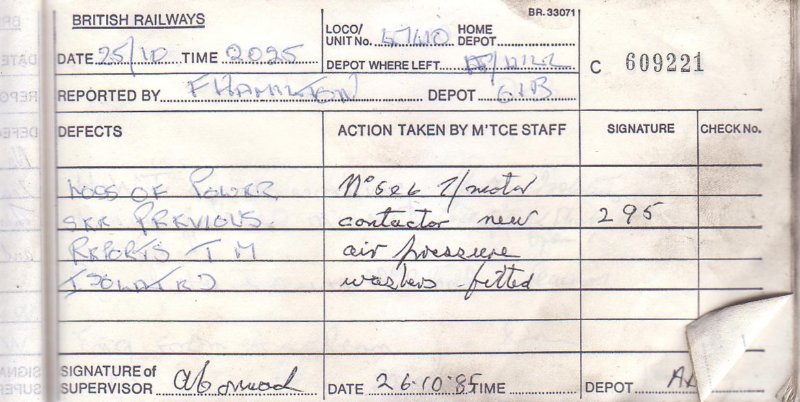 BR.33071
BRITISH RAILWAYS
DATE 25/10 TIME 2025
LOCO/ UNIT No. 47410 HOME DEPOT
DEPOT WHERE LEFT
C 609221
REPORTED BY F HAMILTON DEPOT GIB
DEFECTS ACTION TAKEN BY M'TCE STAFF SIGNATURE CHECK No.
LOSS OF POWER No 5 & 6 T/motor
SEE PREVIOUS contactor new 295
REPORTS T M air pressure
ISOLATED washers fitted
SIGNATURE of SUPERVISOR DATE 26.10.85 TIME DEPOT